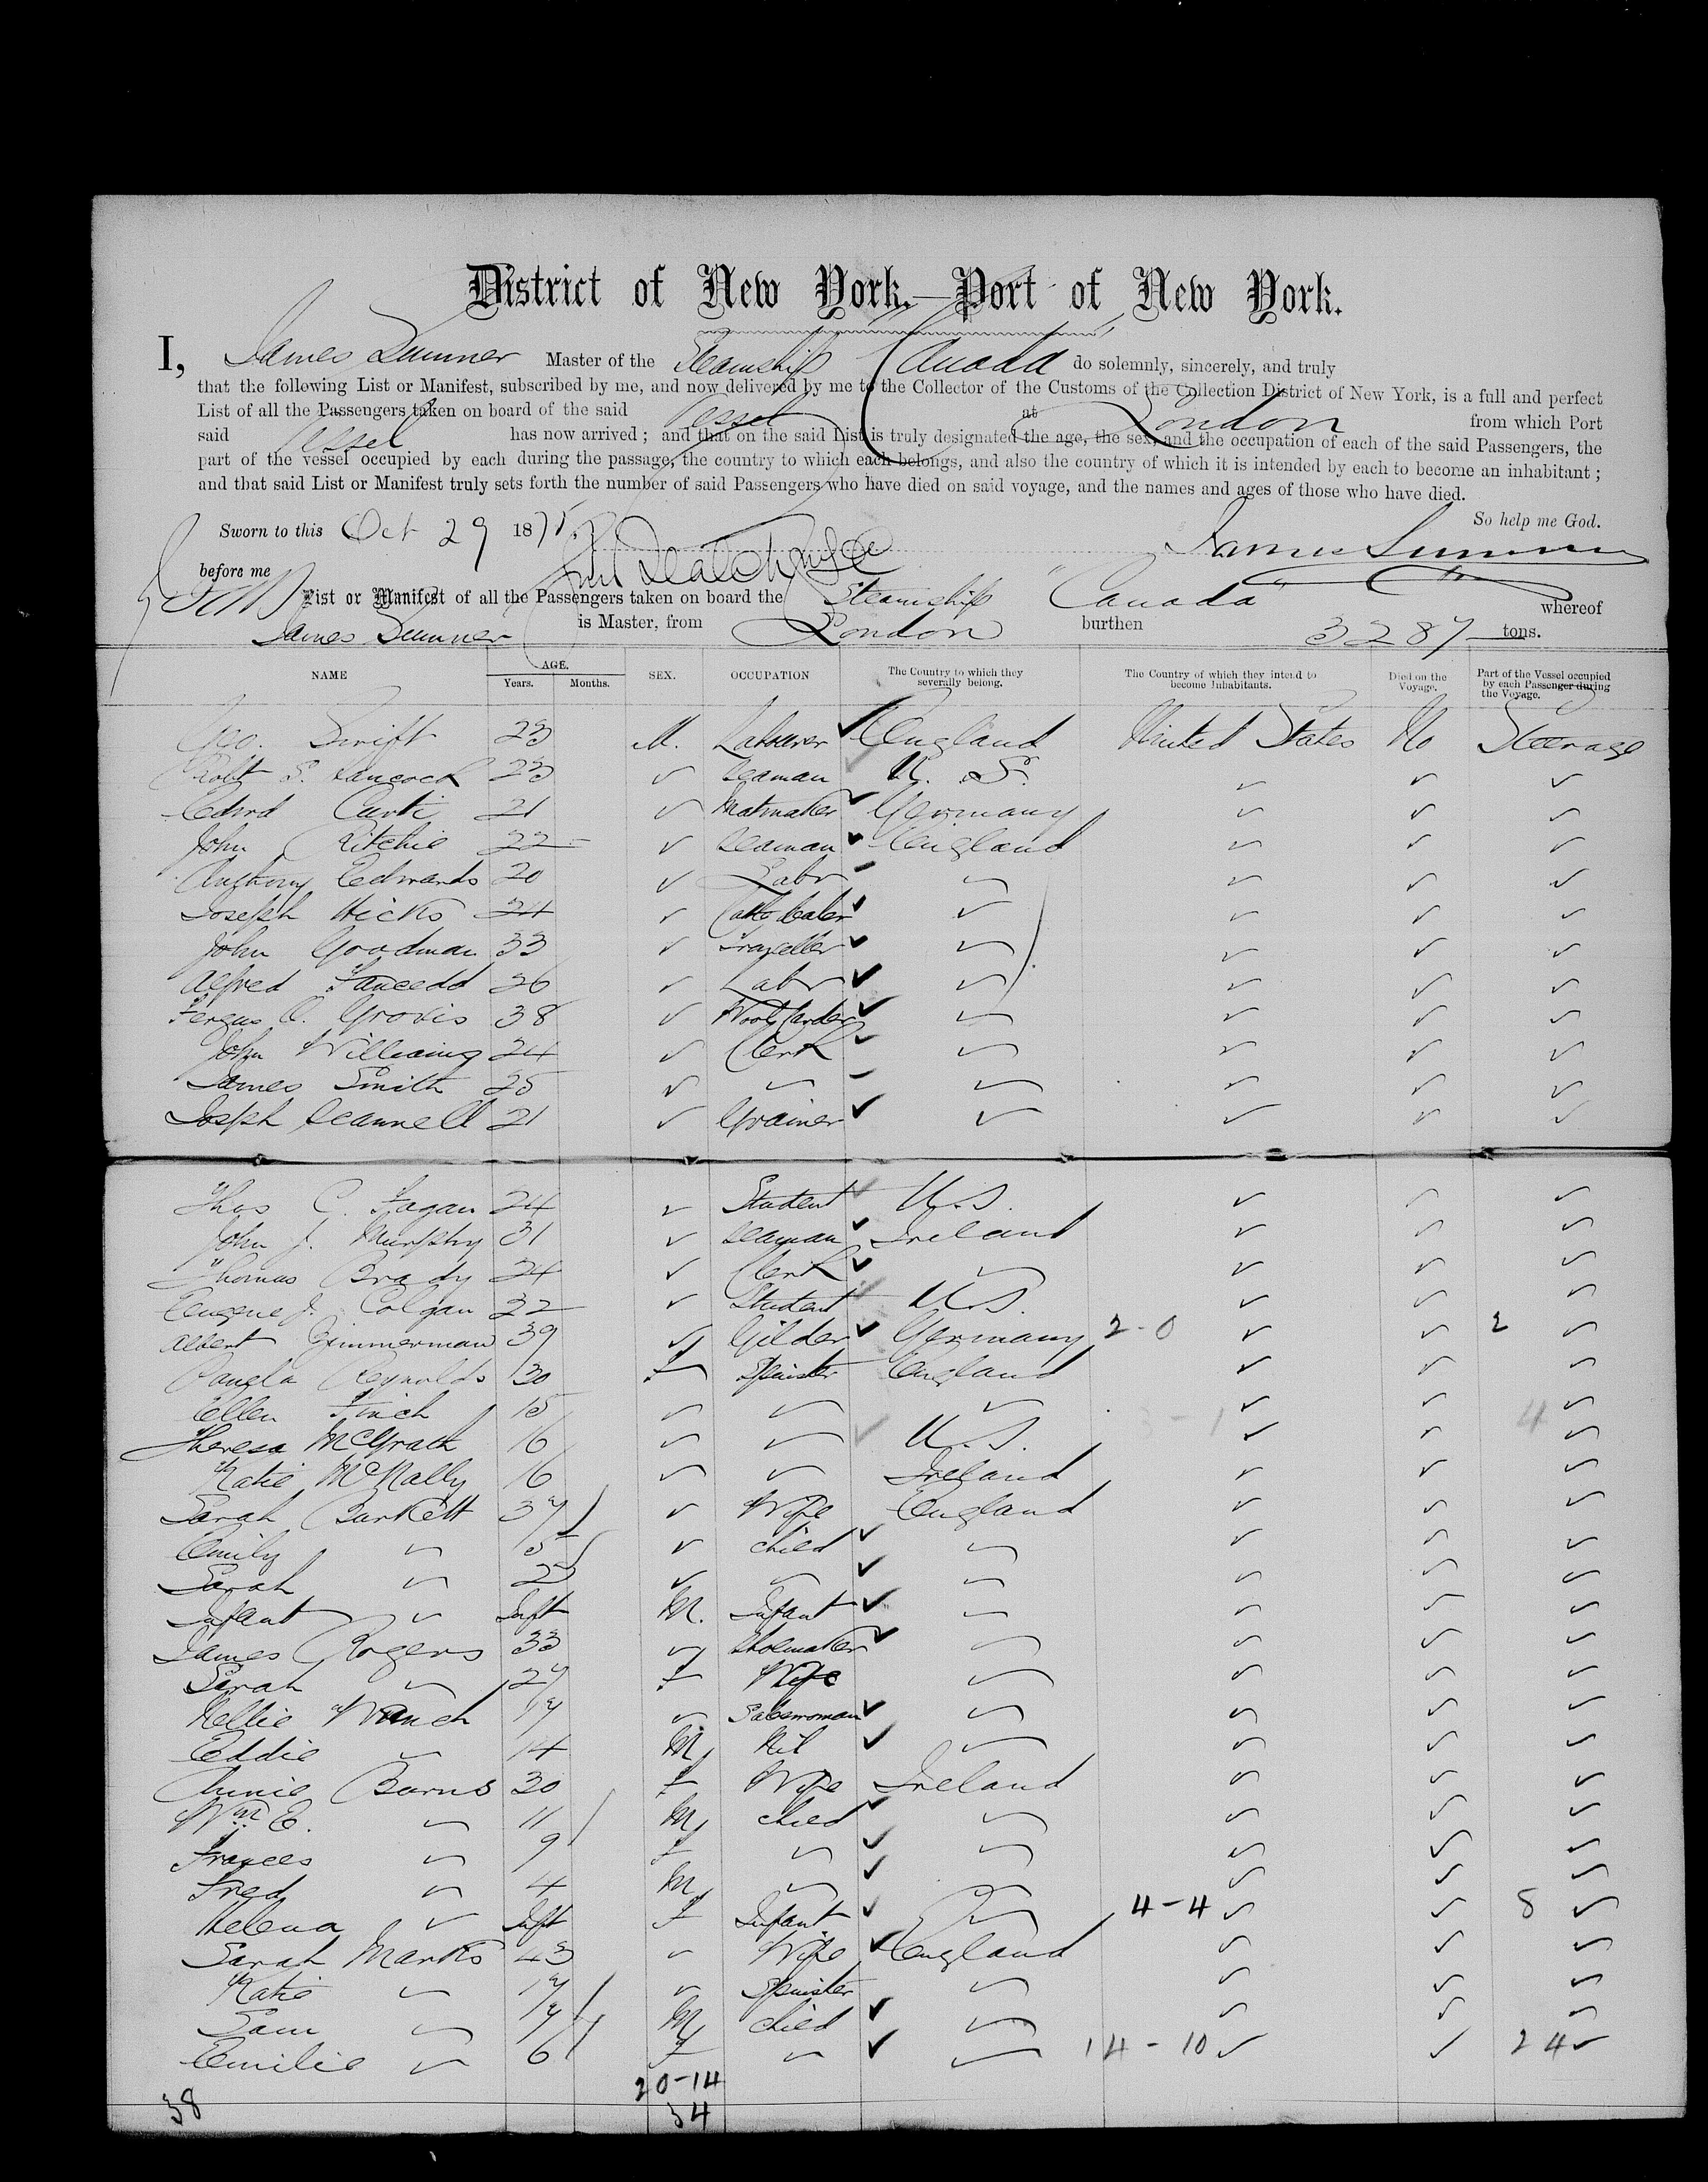 District of New York.—Port of New York.
I, James Sumner Master of the Steamship Canada do solemnly, sincerely, and truly
that the following List or Manifest, subscribed by me, and now delivered by me to the Collector of the Customs of the Collection District of New York, is a full and perfect
List of all the Passengers taken on board of the said Vessel at London from which Port
said Vessel has now arrived; and that on the said List is truly designated the age, the sex, and the occupation of each of the said Passengers, the
part of the vessel occupied by each during the passage, the country to which each belongs, and also the country of which it is intended by each to become an inhabitant;
and that said List or Manifest truly sets forth the number of said Passengers who have died on said voyage, and the names and ages of those who have died.
So help me God.
Sworn to this Oct 29 187
James Sumner
before me
List or Manifest of all the Passengers taken on board the Steamship "Canada" whereof
James Sumner is Master, from London burthen 3287 tons.
NAME AGE. Years. Months. SEX. OCCUPATION The Country to which they severally belong. The Country of which they intend to become Inhabitants. Died on the Voyage. Part of the Vessel occupied by each Passenger during the Voyage.
Geo. Swift 23 M. Labourer ✓ England United States No Steerage
Robt S. Hancock 23 ✓ Seaman ✓ U. S. ✓ ✓ ✓
Edwd Curti 21 ✓ Matmaker ✓ Germany ✓ ✓ ✓
John Ritchie 22 ✓ Seaman ✓ England ✓ ✓ ✓
Anthony Edwards 20 ✓ Labr ✓ ✓ ✓ ✓
Joseph Hicks 24 ✓ ✓ ✓ ✓ ✓ ✓
John Goodman 33 ✓ Traveller ✓ ✓ ✓ ✓ ✓
Alfred 26 ✓ Labr ✓ ✓ ✓ ✓ ✓
Fergus O. Grovis 38 ✓ Wool Carder ✓ ✓ ✓ ✓ ✓
John Williams 24 ✓ Clerk ✓ ✓ ✓ ✓ ✓
James Smith 25 ✓ ✓ ✓ ✓ ✓ ✓
Joseph Scannell 21 ✓ Grainer ✓ ✓ ✓ ✓ ✓
Thos C. Fagan 24 ✓ Student ✓ U.S. ✓ ✓ ✓
John J. Murphy 31 ✓ Seaman ✓ Ireland ✓ ✓ ✓
Thomas Brady 24 ✓ Clerk ✓ ✓ ✓ ✓ ✓
Eugene J. Colgan 22 ✓ Student ✓ U.S. ✓ ✓ ✓
Albert Zimmerman 39 ✓ Gilder ✓ Germany 2-0 ✓ ✓ 2 ✓
Pamela Reynolds 30 F Spinster England ✓ ✓ ✓
Ellen Finch 15 ✓ ✓ ✓ 3-1 ✓ ✓ 4 ✓
Theresa McGrath 16 ✓ ✓ ✓ U.S. ✓ ✓ ✓
Katie McNally 16 ✓ ✓ Ireland ✓ ✓ ✓
Sarah Burkett 37 ✓ Wife England ✓ ✓ ✓
Emily ✓ 5 ✓ child ✓ ✓ ✓ ✓ ✓
Sarah ✓ ✓ ✓ ✓ ✓ ✓ ✓ ✓
Infant ✓ Inft M. Infant ✓ ✓ ✓ ✓ ✓
James Rogers 33 ✓ Shoemaker ✓ ✓ ✓ ✓ ✓
Sarah ✓ 27 F Wife ✓ ✓ ✓ ✓
Nellie Wanch 17 ✓ Saleswoman ✓ ✓ ✓ ✓ ✓
Eddie ✓ 14 M Nil ✓ ✓ ✓ ✓ ✓
Annie Burns 30 F Wife Ireland ✓ ✓ ✓
Wm E. ✓ 11 M child ✓ ✓ ✓ ✓ ✓
Frances ✓ 9 F ✓ ✓ ✓ ✓ ✓ ✓
Fred ✓ 4 M ✓ ✓ ✓ ✓ ✓ ✓
Helena ✓ Inft F Infant ✓ ✓ 4-4 ✓ ✓ 8 ✓
Sarah Marks 43 ✓ Wife ✓ England ✓ ✓ ✓
Katie ✓ 17 ✓ Spinster ✓ ✓ ✓ ✓
Sam ✓ M child ✓ ✓ ✓ ✓ ✓
Emilie ✓ 6 F ✓ ✓ ✓ 14-10 ✓ ✓ 24 ✓
20-14
38 34